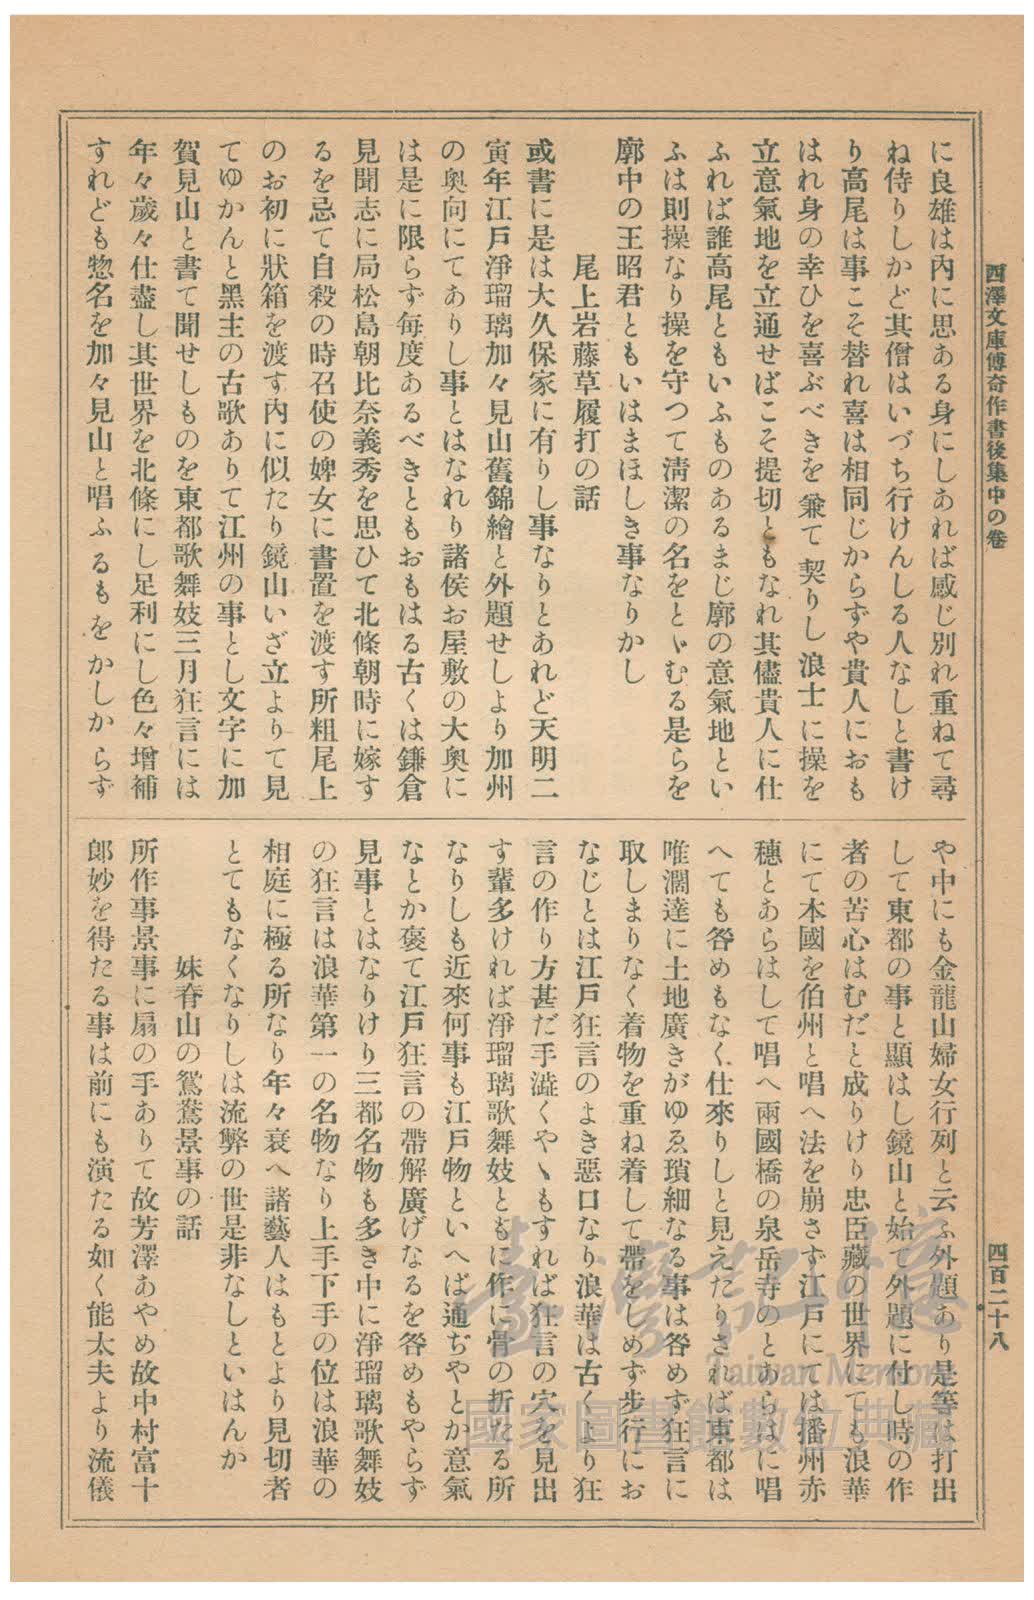 西澤文庫傳奇作書後集中の卷
四百二十八
に良雄は內に思ある身にしあれば感じ別れ重ねて尋
ね侍りしかど其僧はいづち行けんしる人なしと書け
り高尾は事こそ替れ喜は相同じからずや貴人におも
はれ身の幸ひを喜ぶべきを兼て契りし浪士に操を
立意氣地を立通せばこそ提切ともなれ其儘貴人に仕
ふれば誰高尾ともいふものあるまじ廓の意氣地とい
ふは則操なり操を守つて淸潔の名をとゞむる是らを
廓中の王昭君ともいはまほしき事なりかし
尾上岩藤草履打の話
或書に是は大久保家に有りし事なりとあれど天明二
寅年江戶淨瑠璃加々見山舊錦繪と外題せしより加州
の奧向にてありし事とはなれり諸侯お屋敷の大奧に
は是に限らず每度あるべきともおもはる古くは鎌倉
見聞志に局松島朝比奈義秀を思ひて北條朝時に嫁す
るを忌て自殺の時召使の婢女に書置を渡す所粗尾上
のお初に狀箱を渡す內に似たり鏡山いざ立よりて見
てゆかんと黑主の古歌ありて江州の事とし文字に加
賀見山と書て聞せしものを東都歌舞妓三月狂言には
年々歲々仕盡し其世界を北條にし足利にし色々增補
すれども惣名を加々見山と唱ふるもをかしからず
や中にも金龍山婦女行列と云ふ外題あり是等は打出
して東都の事と顯はし鏡山と始て外題に付し時の作
者の苦心はむだと成りけり忠臣藏の世界にても浪華
にて本國を伯州と唱へ法を崩さず江戶にては播州赤
穗とあらはして唱へ兩國橋の泉岳寺のとあらはに唱
へても咎めもなく仕來りしと見えたりされば東都は
唯濶達に土地廣きがゆゑ瑣細なる事は咎めず狂言に
取しまりなく着物を重ね着して帶をしめず步行にお
なじとは江戶狂言のよき惡口なり浪華は古くより狂
言の作り方甚だ手澁くやゝもすれば狂言の穴を見出
す輩多ければ淨瑠璃歌舞妓ともに作に骨の折たる所
なりしも近來何事も江戶物といへば通ぢやとか意氣
なとか褒て江戶狂言の帶解廣げなるを咎めもやらず
見事とはなりけり三都名物も多き中に淨瑠璃歌舞妓
の狂言は浪華第一の名物なり上手下手の位は浪華の
相庭に極る所なり年々衰へ諸藝人はもとより見切者
とてもなくなりしは流弊の世是非なしといはんか
妹脊山の鴛鴦景事の話
所作事景事に扇の手ありて故芳澤あやめ故中村富十
郞妙を得たる事は前にも演たる如く能太夫より流儀
臺灣記憶
Taiwan Memory
國家圖書館數位典藏